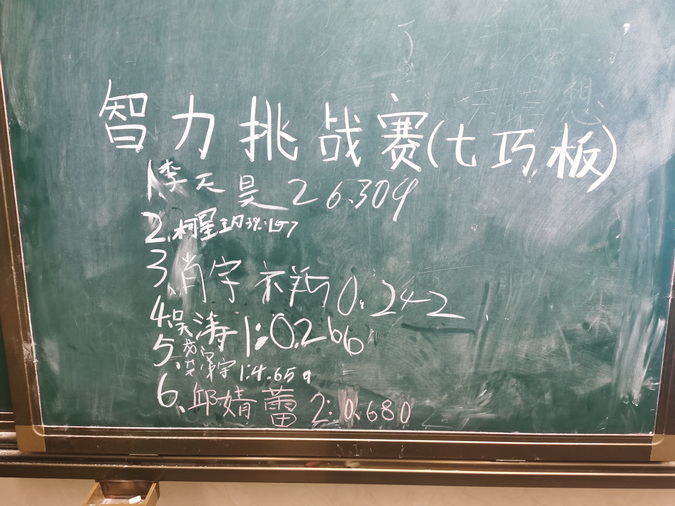 智力挑战赛(七巧板)
1.李天昊26.309
2.柯星玥39.157
3.肖宇 0.242
4.吴涛1:0.266
5. 宇1:4.659
6.邱婧蕾2:0.680